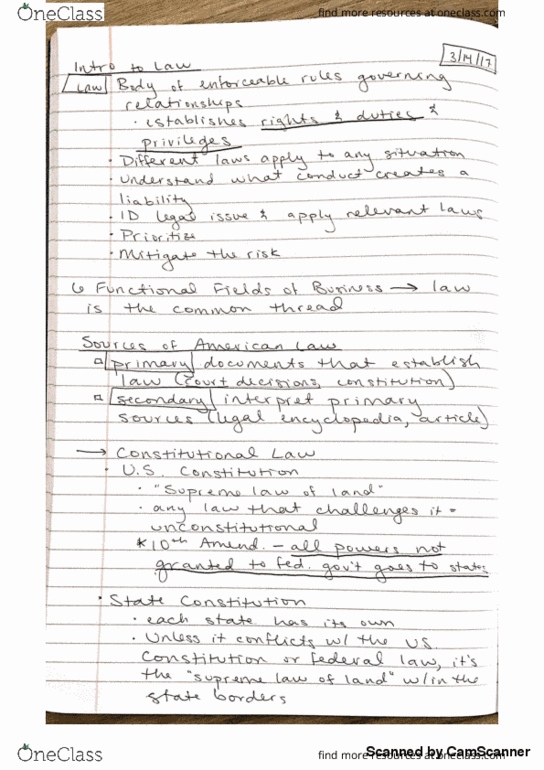 OneClass
find more resources at oneclass.com
3/14/17
Intro to Law
Law Body of enforceable rules governing
relationships
· establishes rights & duties &
privileges
· Different laws apply to any situation
· understand what conduct creates a
liability
· ID legal issue & apply relevant laws
· Prioritize
· Mitigate the risk
6 Functional Fields of Business → law
is the common thread
Sources of American Law
primary documents that establish
law (court decisions, constitution)
secondary interpret primary
sources (legal encyclopedia, article)
→ Constitutional Law
· U.S. Constitution
· "Supreme law of land"
· any law that challenges it =
unconstitutional
* 10th Amend. - all powers not
granted to fed. gov't goes to states
· State Constitution
· each state has its own
· Unless it conflicts w/ the US
Constitution or federal law, it's
the "supreme law of land" w/in the
state borders
OneClass
find more resources at oneclass.com
Scanned by CamScanner